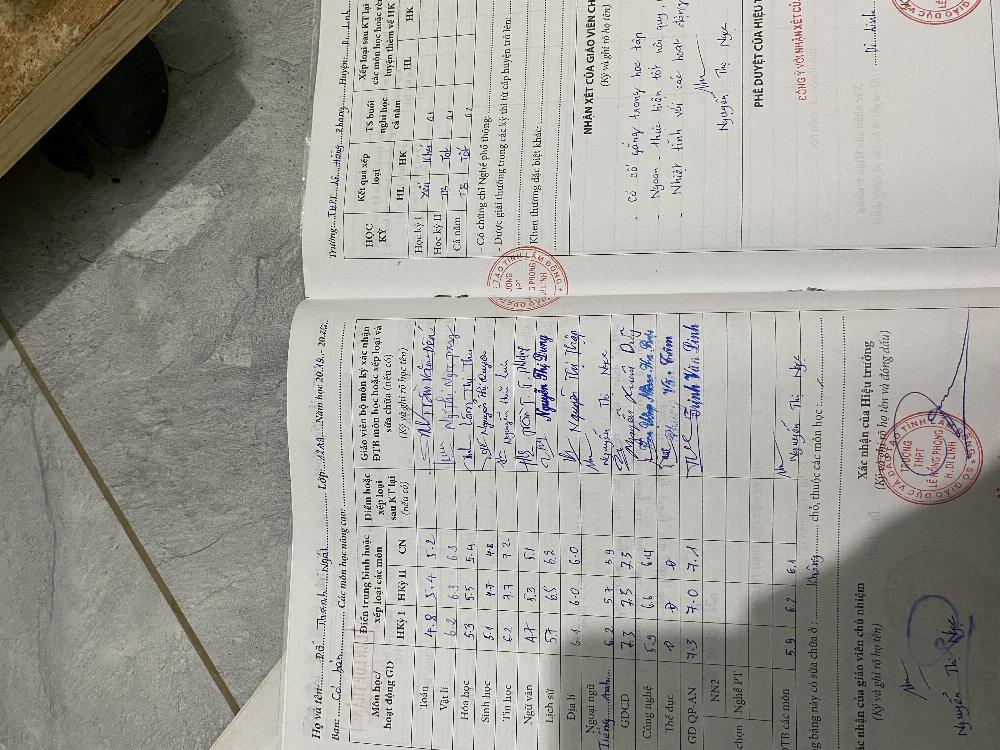 Họ và tên: Đỗ Thành Ngát Lớp: 12A3 Năm học 2019 - 2020
Ban: Cơ bản Các môn học nâng cao:
Môn học/ hoạt động GD Điểm trung bình hoặc xếp loại các môn Điểm hoặc xếp loại sau KT lại (nếu có) Giáo viên bộ môn ký xác nhận ĐTB môn học hoặc xếp loại và sửa chữa (nếu có) (Ký và ghi rõ họ tên)
HKỳ I HKỳ II CN
Toán 4.8 5.4 5.2
Vật lí 6.2 6.3 6.3
Hóa học 5.3 5.5 5.4
Sinh học 5.1 4.7 4.8 Nguyễn Thị Quyên
Tin học 6.2 7.7 7.2 Nguyễn
Ngữ văn 4.7 5.3 5.1
Lịch sử 5.7 6.5 6.2 Nguyễn Thị Dung
Địa lí 6.1 6.0 6.0 Nguyễn Thị Thiệp
Ngoại ngữ Tiếng Anh 6.2 5.7 5.9 Nguyễn Thị Ngọc
GDCD 7.3 7.5 7.5 Nguyễn Xuân Duy
Công nghệ 5.9 6.6 6.4
Thể dục Đ Đ Đ
GD QP-AN 7.3 7.0 7.1 Trịnh Văn Linh
NN2
chọn Nghề PT
ĐTB các môn 5.9 6.2 6.1 Nguyễn Thị Ngọc
ng bảng này có sửa chữa ở: Không chỗ, thuộc các môn học
ác nhận của giáo viên chủ nhiệm
(Ký và ghi rõ họ tên)
Nguyễn Thị Ngọc
Xác nhận của Hiệu trưởng
(Ký và ghi rõ họ tên và đóng dấu)
SỞ GIÁO DỤC VÀ ĐÀO TẠO TỈNH LÂM ĐỒNG
TRƯỜNG
THPT
LÊ HỒNG PHONG
H. DI LINH
Trường: THPT Lê Hồng Phong Huyện: Di Linh
HỌC KỲ Kết quả xếp loại TS buổi nghỉ học cả năm Xếp loại sau KT lại các môn học hoặc rèn luyện thêm về HK
HL HK HL HK
Học kỳ I Yếu Khá 01
Học kỳ II Tb Tốt 01
Cả năm Tb Tốt 02
- Có chứng chỉ Nghề phổ thông:
- Được giải thưởng trong các kỳ thi từ cấp huyện trở lên:
Khen thưởng đặc biệt khác:
NHẬN XÉT CỦA GIÁO VIÊN CH
(Ký và ghi rõ họ tên)
- Có cố gắng trong học tập
- Ngoan, thực hiện tốt nội quy
- Nhiệt tình với các hoạt động
Nguyễn Thị Ngọc
PHÊ DUYỆT CỦA HIỆU T
ĐỒNG Ý VỚI NHẬN XÉT CỦ
Di Linh